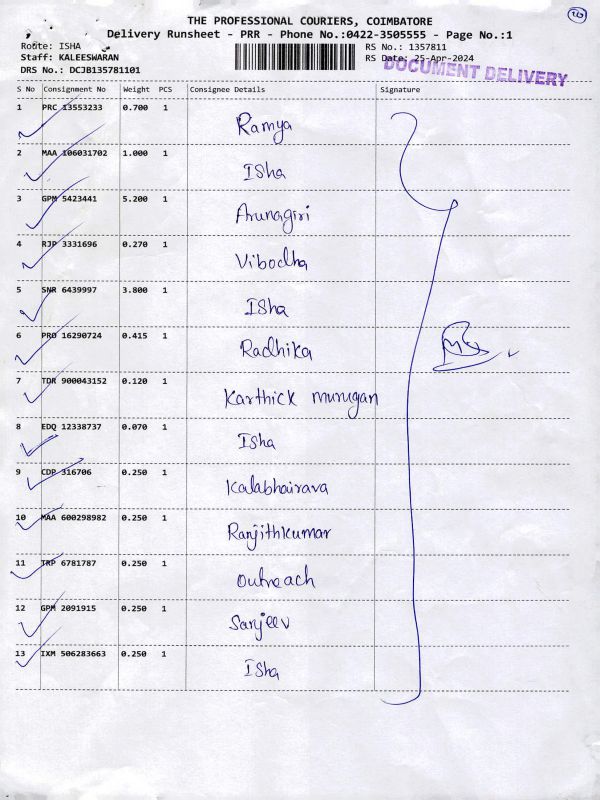 THE PROFESSIONAL COURIERS, COIMBATORE
Delivery Runsheet - PRR - Phone No.:0422-3505555 - Page No.:1
Route: ISHA RS No.: 1357811
Staff: KALEESWARAN RS Date: 25-Apr-2024
DRS No.: DCJB135781101 DOCUMENT DELIVERY
S No Consignment No Weight PCS Consignee Details Signature
1 PRC 13553233 0.700 1 Ramya
2 MAA 106031702 1.000 1 ISha
3 GPM 5423441 5.200 1 Arunagiri
4 RJP 3331696 0.270 1 Vibodha
5 SNR 6439997 3.800 1 ISha
6 PRO 16290724 0.415 1 Radhika
7 TDR 900043152 0.120 1 Karthick murugan
8 EDQ 12338737 0.070 1 Isha
9 CDP 316706 0.250 1 Kalabhairava
10 MAA 600298982 0.250 1 Ranjithkumar
11 TRP 6781787 0.250 1 Outreach
12 GPM 2091915 0.250 1 Sanjeev
13 IXM 506283663 0.250 1 ISha